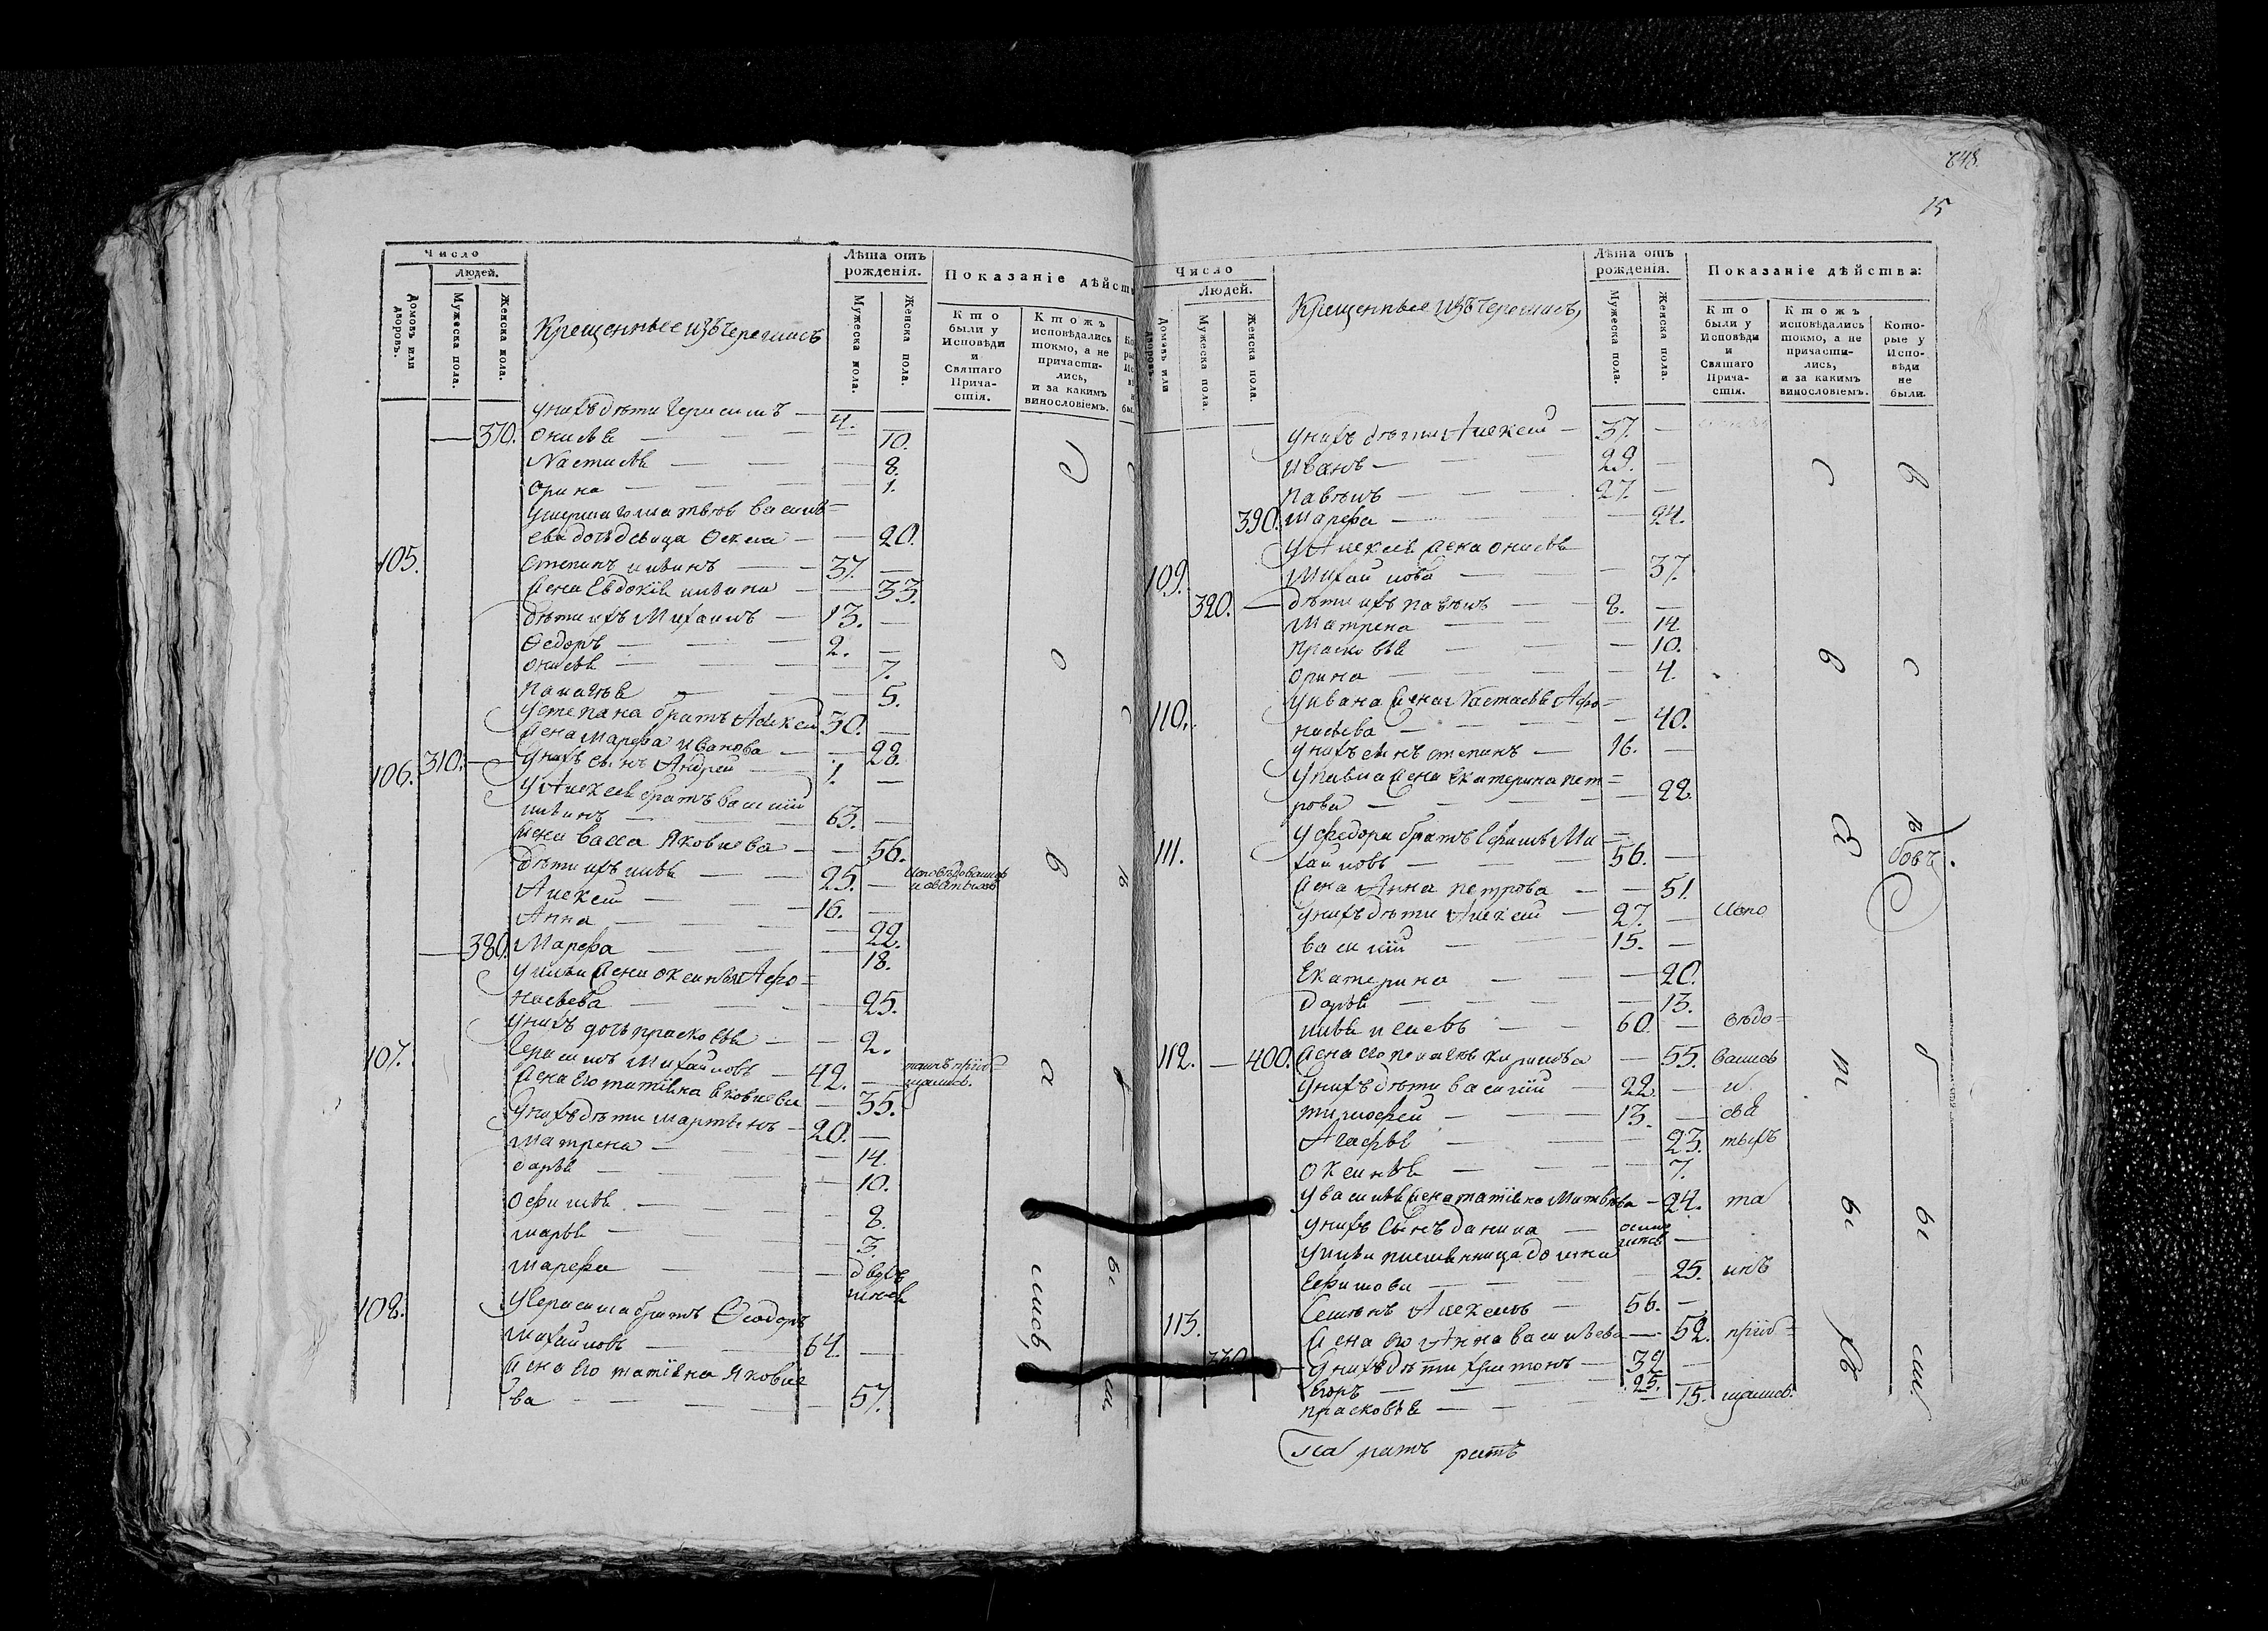 Число
Людей.
Домовъ или дворовъ.
Мужеска пола.
Женска пола.
Крещенные изъ черемисъ
Лѣта отъ рожденія.
Мужеска пола.
Женска пола.
Показаніе дѣйст
Кто были у Исповѣди и Святаго Прича-стія.
Ктожъ исповѣдались токмо, а не причасти-лись, и за какимъ винословіемъ.
у нихъ дѣти Герасимъ — 4.
— 370. Онисья — 10.
Настасья — 8.
Орина — 1.
умершаго Матвея Василь=
ева дочь девица — 20.
105. Степанъ Ильинъ — 37. —
жена Евдокія Ильина — 33.
дѣти ихъ Михаилъ — 13. —
Ѳедоръ — 2. —
Онисья — 7.
Палагея — 5.
у Степана братъ Алексей 30. —
жена Марфа Иванова — 28.
106. 310. — у нихъ сынъ Андрей — 1. —
у Алексея братъ Василий
Ильинъ — 63. —
жена Васса Яковлева — 56.
дѣти ихъ Илья — 25. — исповѣдовались и святыхъ
Алексей — 16. —
Анна — 22.
— 380. Марфа — 18.
у Ильи жена Оксинья Афо=
насьева — 25.
у нихъ дочь Прасковья — 2.
107. Герасимъ Михайловъ — 42. — таинъ приоб=щались.
жена его Татіяна Яковлева — 35.
у нихъ дѣти Мартынъ — 20. —
Матрена — 14.
Дарья — 10.
Офимья — 8.
Марья — 3.
Марфа —
108. у Герасима братъ Ѳеодоръ
Михайловъ — 64. —
жена его Татіяна Яковле
ва — 57.
848.
15
Число
Людей.
Домовъ или дворовъ.
Мужеска пола.
Женска пола.
Крещенные изъ черемисъ,
Лѣта отъ рожденія.
Мужеска пола.
Женска пола.
Показаніе дѣйства:
Кто были у Исповѣди и Святаго Прича-стія.
Ктожъ исповѣдались токмо, а не причасти-лись, и за какимъ винословіемъ.
Кото-рые у Испо-вѣди не были.
у нихъ дѣти Алексей — 37. —
Иванъ — 29. —
Павелъ — 27. —
390. Марфа — 24.
у Алексея жена Онисья
109. Михайлова — 37.
320. — дѣти ихъ Павелъ — 8. —
Матрена — 14
Прасковья — 10.
Орина — 4.
у Ивана жена Настасья Афо=
110. насьева — 40.
у нихъ сынъ Степанъ — 16. —
у Павла жена Екатерина Пет=
рова — 22.
у Федора братъ Ефимъ Ми=
111. хайловъ — 56. —
жена Анна Петрова — 51.
у нихъ дѣти Алексей — 27. — Испо
Василий — 15. —
Екатерина — 20.
Дарья — 13.
Илья — 60. — вѣдо=
112. — 400. жена его Палагея — 55. вались
у нихъ дѣти Василий — 22. — и
Тимофей — 13. — свя
Агафья — 23. тыхъ
Оксинья — 7.
у Василья жена Татіяна Матвеева — 24. та
у нихъ сынъ Данила —
у Ильи племянница
Ефимова — 25. инъ
Семенъ Алексеевъ — 56. —
113. жена его Анна Васильева — 52. приоб=
330. — у нихъ дѣти Харитонъ — 32 —
Егоръ — 25. —
Прасковья — 15. щались.